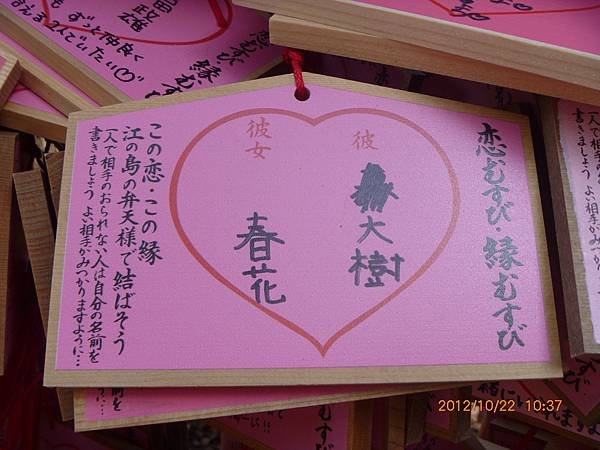 恋むすび・縁むすび
彼
大樹
彼女
春花
この恋・この縁
江の島の弁天様で結ばそう
一人で相手のおられない人は自分の名前を
書きましょう よい相手がみつかりますように…
縁むすび
ずっと仲良く
2012/10/22 10:37